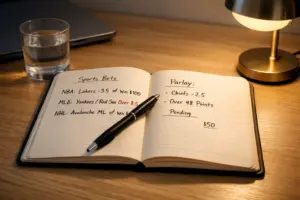 Sports Bets
NBA: Lakers -3.5 of win $100
MLB: Yankees / Red Sox Over 8.5
NHL: Avalanche ML of win
Parlay:
- Chiefs -2.5
- Over 48 Points
Pending
$50